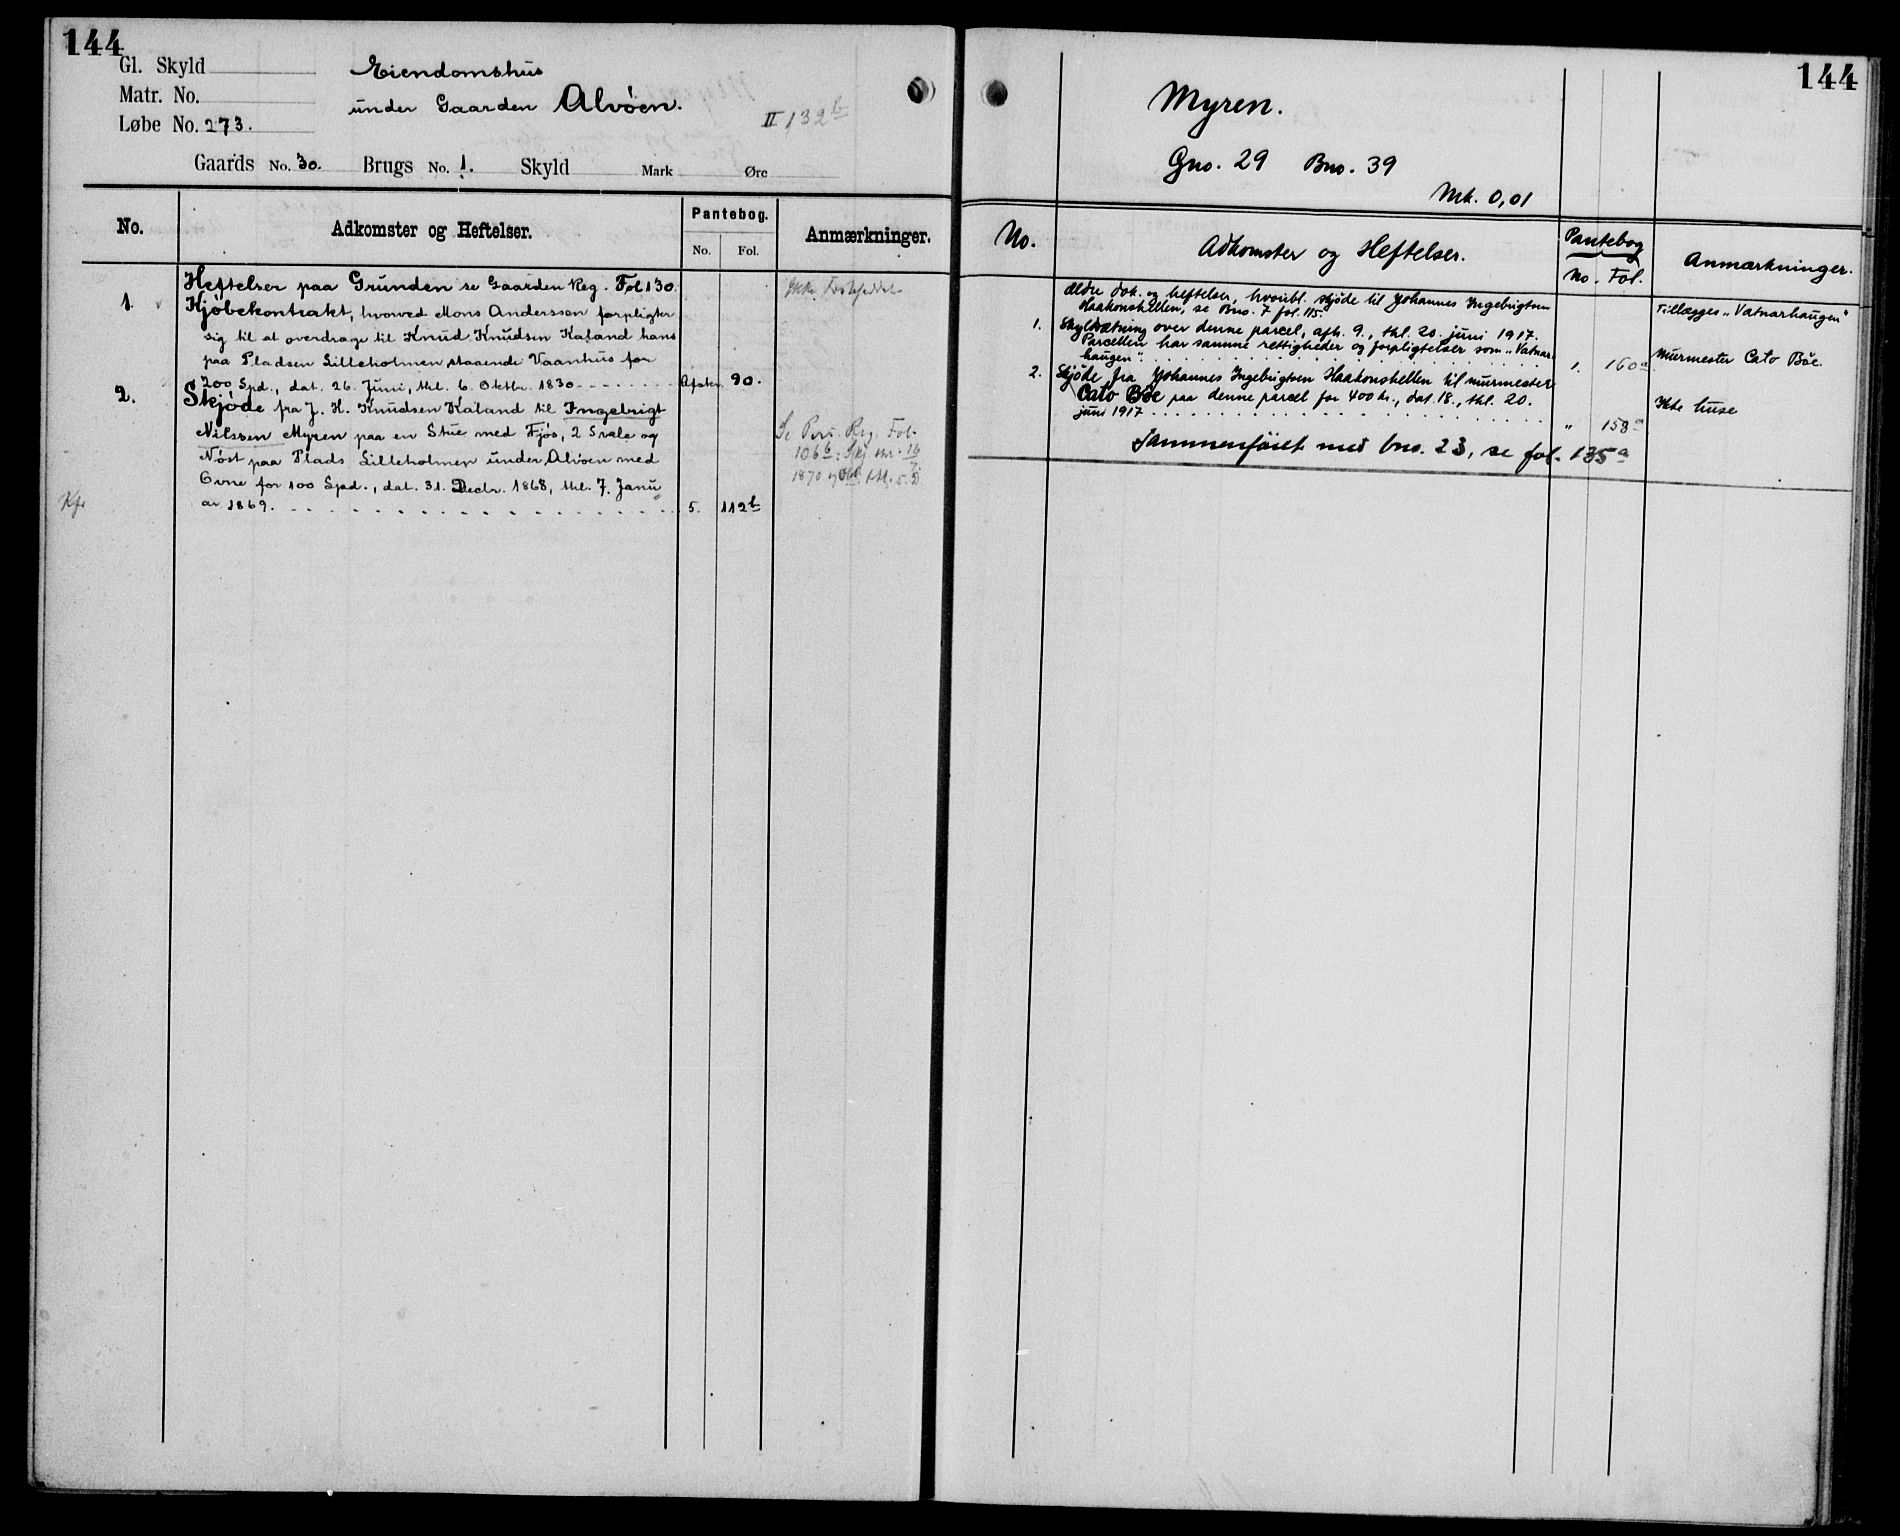 144
Gl. Skyld
Matr. No.
Løbe No. 273.
Eiendomshus
under Gaarden Alvøen.
II 132 b
Gaards No. 30. Brugs No. 1. Skyld Mark Øre
No. Adkomster og Heftelser. Pantebog. No. Fol. Anmærkninger.
Heftelser paa Grunden se Gaarden Reg. Fol 130.
1. Kjøbekontrakt, hvorved Mons Anderssen forpligter
sig til at overdrage til Knud Knudsen Kaland hans
paa Pladsen Lilleholmen staaende Vaanhus for
200 Spd., dat. 26. Juni, thl. 6. Oktbr. 1830 Afskr. 90.
2. Skjøde fra J. H. Knudsen Kaland til Ingebrigt
Nilssen Myren paa en Stue med Fjøs, 2 Svale og
Nøst paa Plads Lilleholmen under Alvøen med
Ovne for 100 Spd., dat. 31. Decbr. 1868, thl. 7. Janu
ar 1869. 5. 112 b
Ikke
Se Pers. Reg. Fol.
106 b: Skj
1870
144
Myren.
Gno. 29 Bno. 39
Mk. 0,01
No. Adkomster og Heftelser. Pantebog No. Fol. Anmærkninger.
Ældre dok. og heftelser, hvoribl. skjøde til Johannes Ingebrigtsen
Haakonshellen, se Bno. 7 fol. 115.
1. Skyldsætning over denne parcel, afh. 9., thl. 20. juni 1917.
Parcellen har samme rettigheder og forpligtelser som "Vatnar-
haugen" 1. 160 a
2. Skjøde fra Johannes Ingebrigtsen Haakonshellen til murmester
Cato Böe paa denne parcel for 400 kr., dat. 18., thl. 20.
juni 1917 " 158 a
Sammenføiet med bno. 23, se fol. 135 a
Tillægges "Vatnarhaugen"
Murmester Cato Böe
Ikke huse